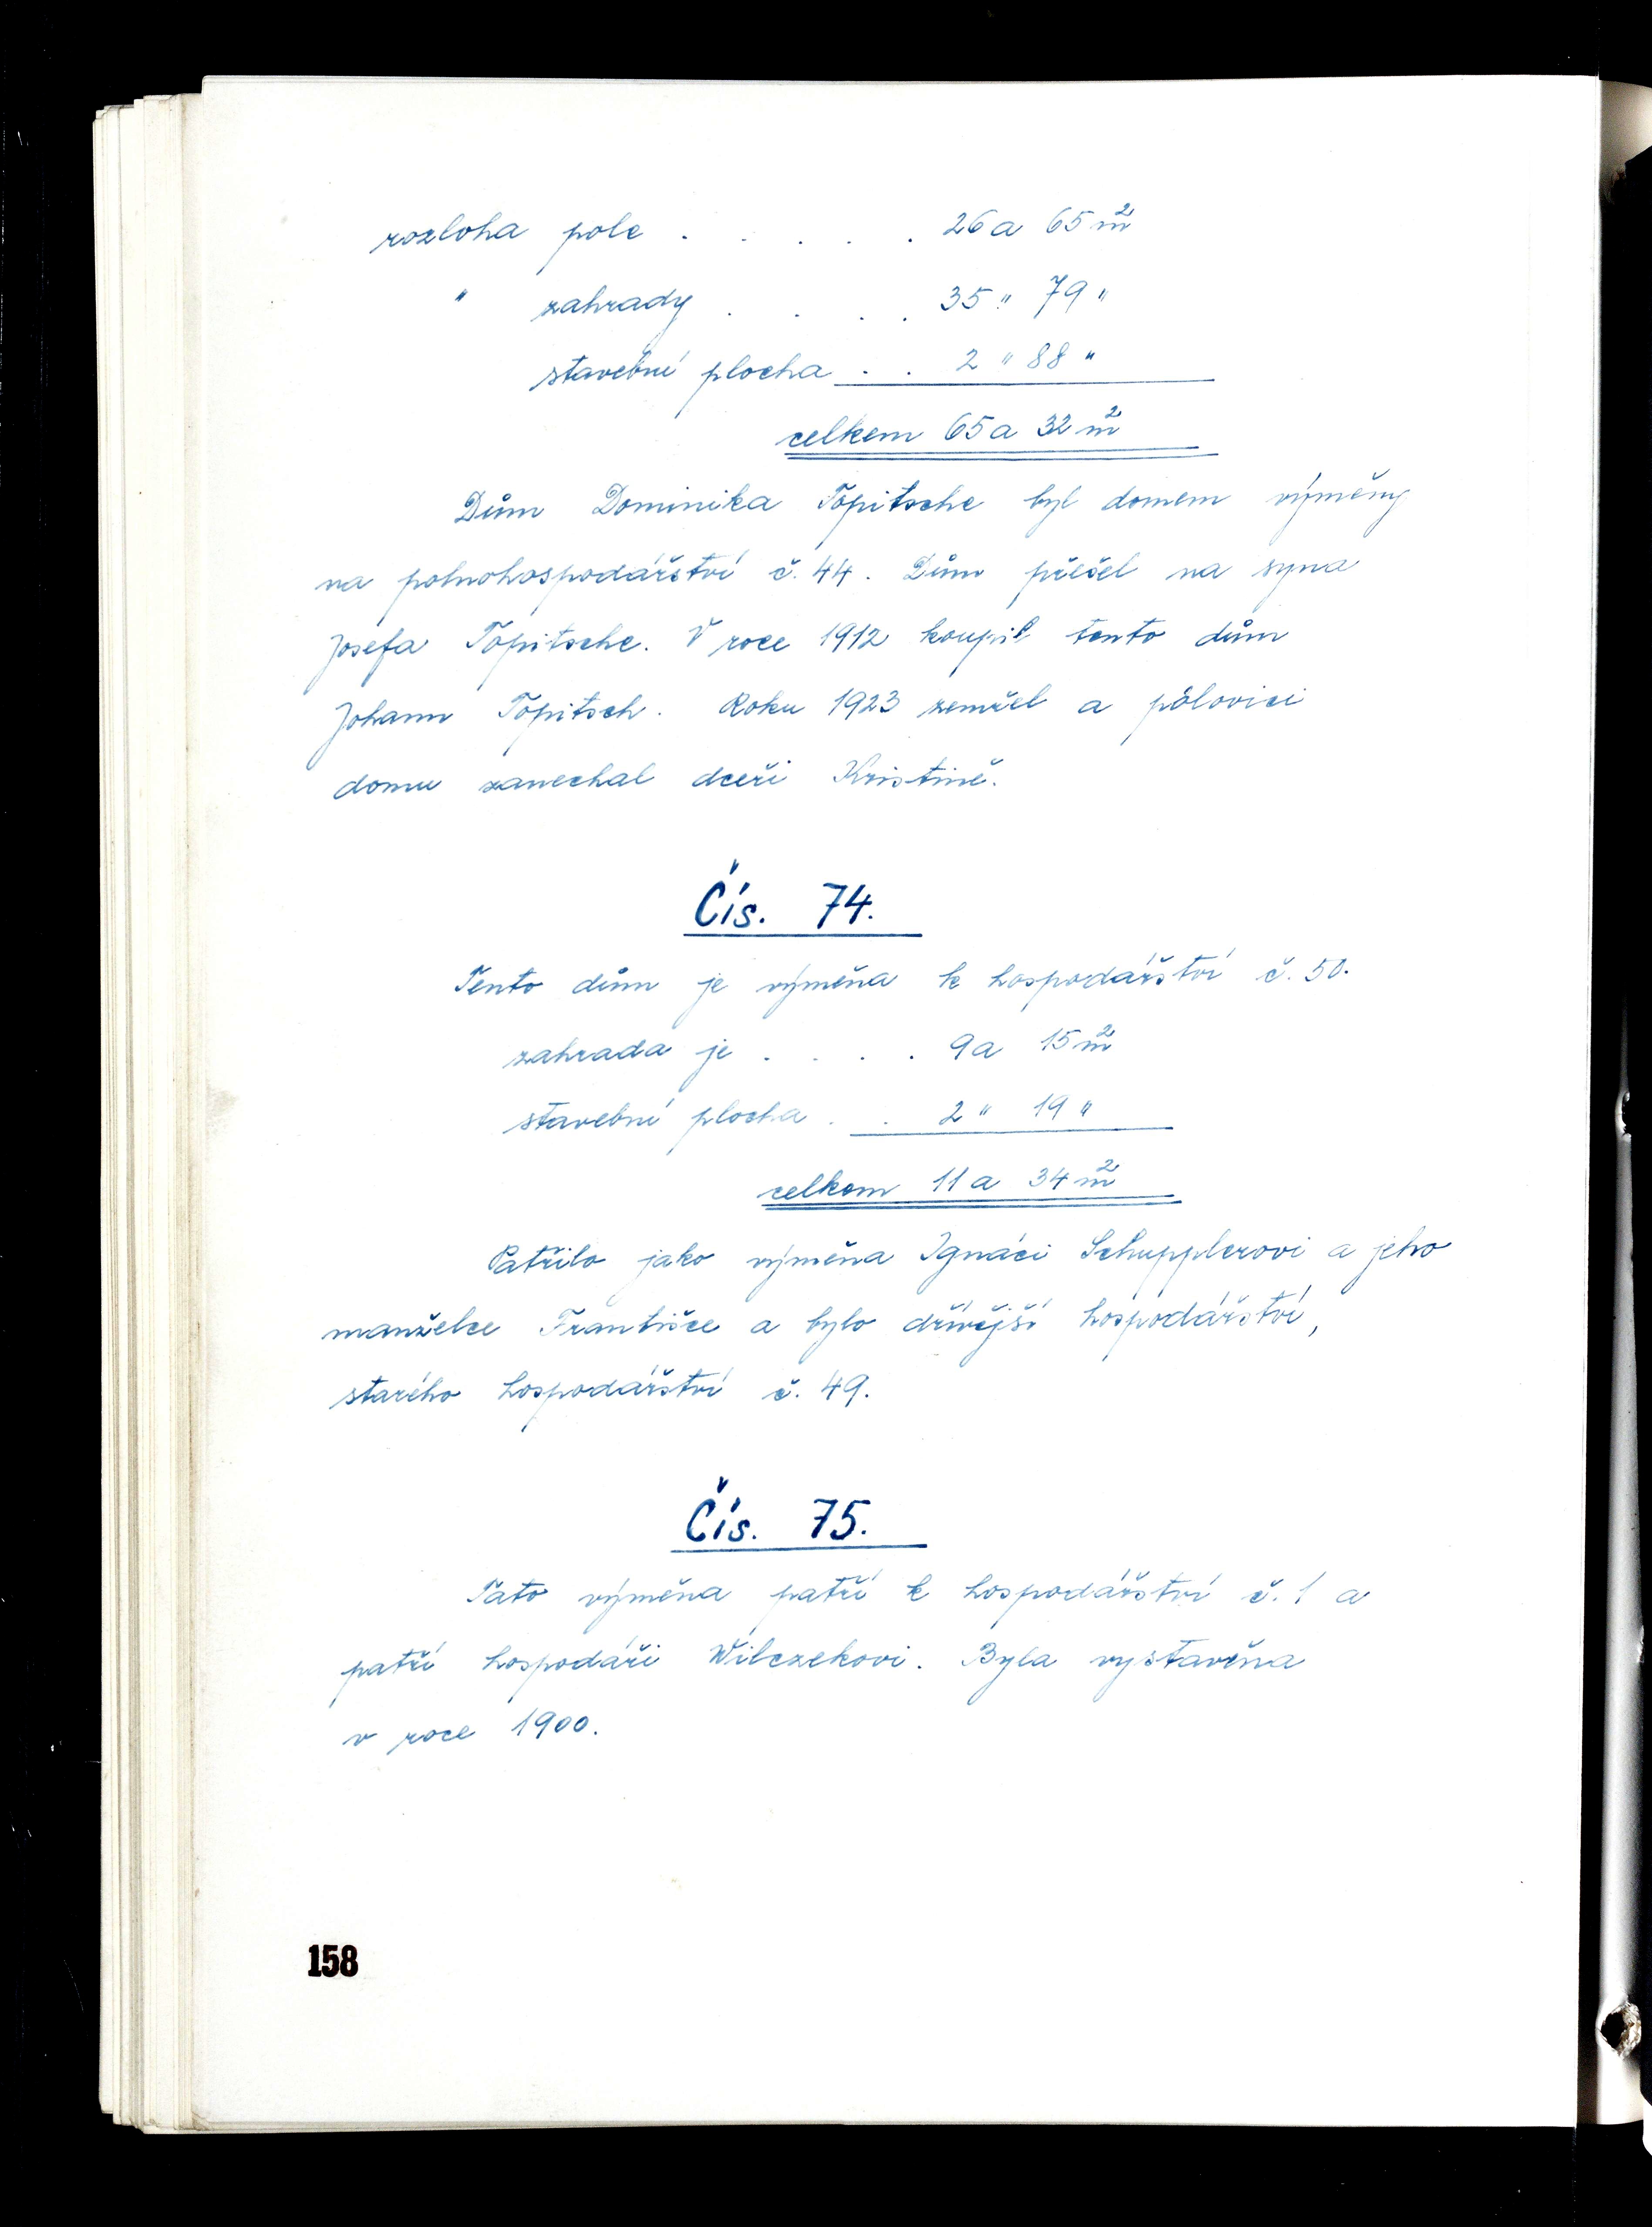 rozloha pole . . . . . 26a 65 m²
" zahrady . . . . 35 " 79 "
stavební plocha . . 2 " 88 "
celkem 65a 32 m²
Dům Dominika Töpitsche byl domem výměny
na polnohospodářství č. 44. Dům přešel na syna
Josefa Töpitsche. V roce 1912 koupil tento dům
Johann Töpitsch. Roku 1923 zemřel a půlovici
domu zanechal dceři Kristině.
Čís. 74.
Tento dům je výměna k hospodářství č. 50.
zahrada je . . . . 9a 15 m²
stavební plocha . . 2 " 19 "
celkem 11a 34 m²
Patřilo jako výměna Ignáci Schupplerovi a jeho
manželce Františce a bylo dřívější hospodářství,
starého hospodářství č. 49.
Čís. 75.
Tato výměna patří k hospodářství č. 1 a
patří hospodáři Wilczekovi. Byla vystavěna
v roce 1900.
158